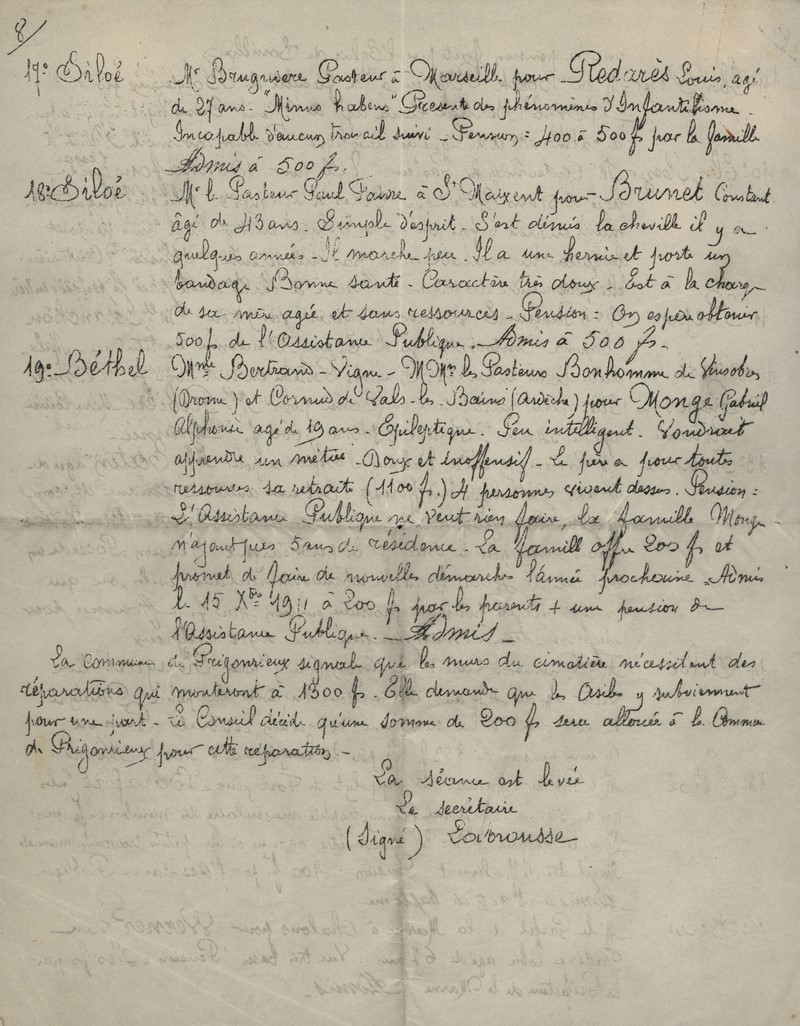 8/
17° Siloé Mr Bruguiere Pasteur à Marseille pour Redarès Louis, agé
de 27 ans - "Minus habens" Présente des phénomènes d'Infantilisme.
Incapable d'aucun travail suivi - Pension = 400 à 500 fs par la famille
Admis à 500 fs.
18° Siloé Mr le Pasteur Paul Faivre à St Maixent pour Brunet Constant
âgé de 43 ans. Simple d'esprit. S'est démis la cheville il y a
quelques années - Il marche peu. Il a une hernie et porte un
bandage Bonne santé - Caractère très doux - Est à la charge
de sa mère agée et sans ressources - Pension = On espère obtenir
500 fs de l'Assistance Publique. Admis à 500 fs -
19° Béthel Mme Bertrand - Vigne - MMrs les Pasteurs Bonhomme de Vinsobres
(Drome) et Cornud de Vals-les-Bains (Ardèche) pour Monge Gabriel
Alphonse agé de 19 ans - Epileptique. Peu intelligent. Voudrait
apprendre un métier - Doux et inoffensif - Le père a pour toutes
ressources sa retraite (1100 f.) 4 personnes vivent dessus. Pension =
L'Assistance Publique ne veut rien faire, la famille Monge
n'ayant pas 5 ans de résidence - La famille offre 200 fs et
promet de faire de nouvelles démarches l'année prochaine - Admis
le 15 Xbre 1911 à 200 fs par les parents + une pension de
l'Assistance Publique - Admis -
La Commune de Prigonrieux signale que les murs du cimetière nécessitent des
réparations qui monteront à 1300 fs. Elle demande que les Asiles y subviennent
pour une part - Le Conseil décide qu'une somme de 200 fs sera allouée à la Commune
de Prigonrieux pour cette réparation -
La séance est levée
Le secrétaire
(Signé) Labrousse